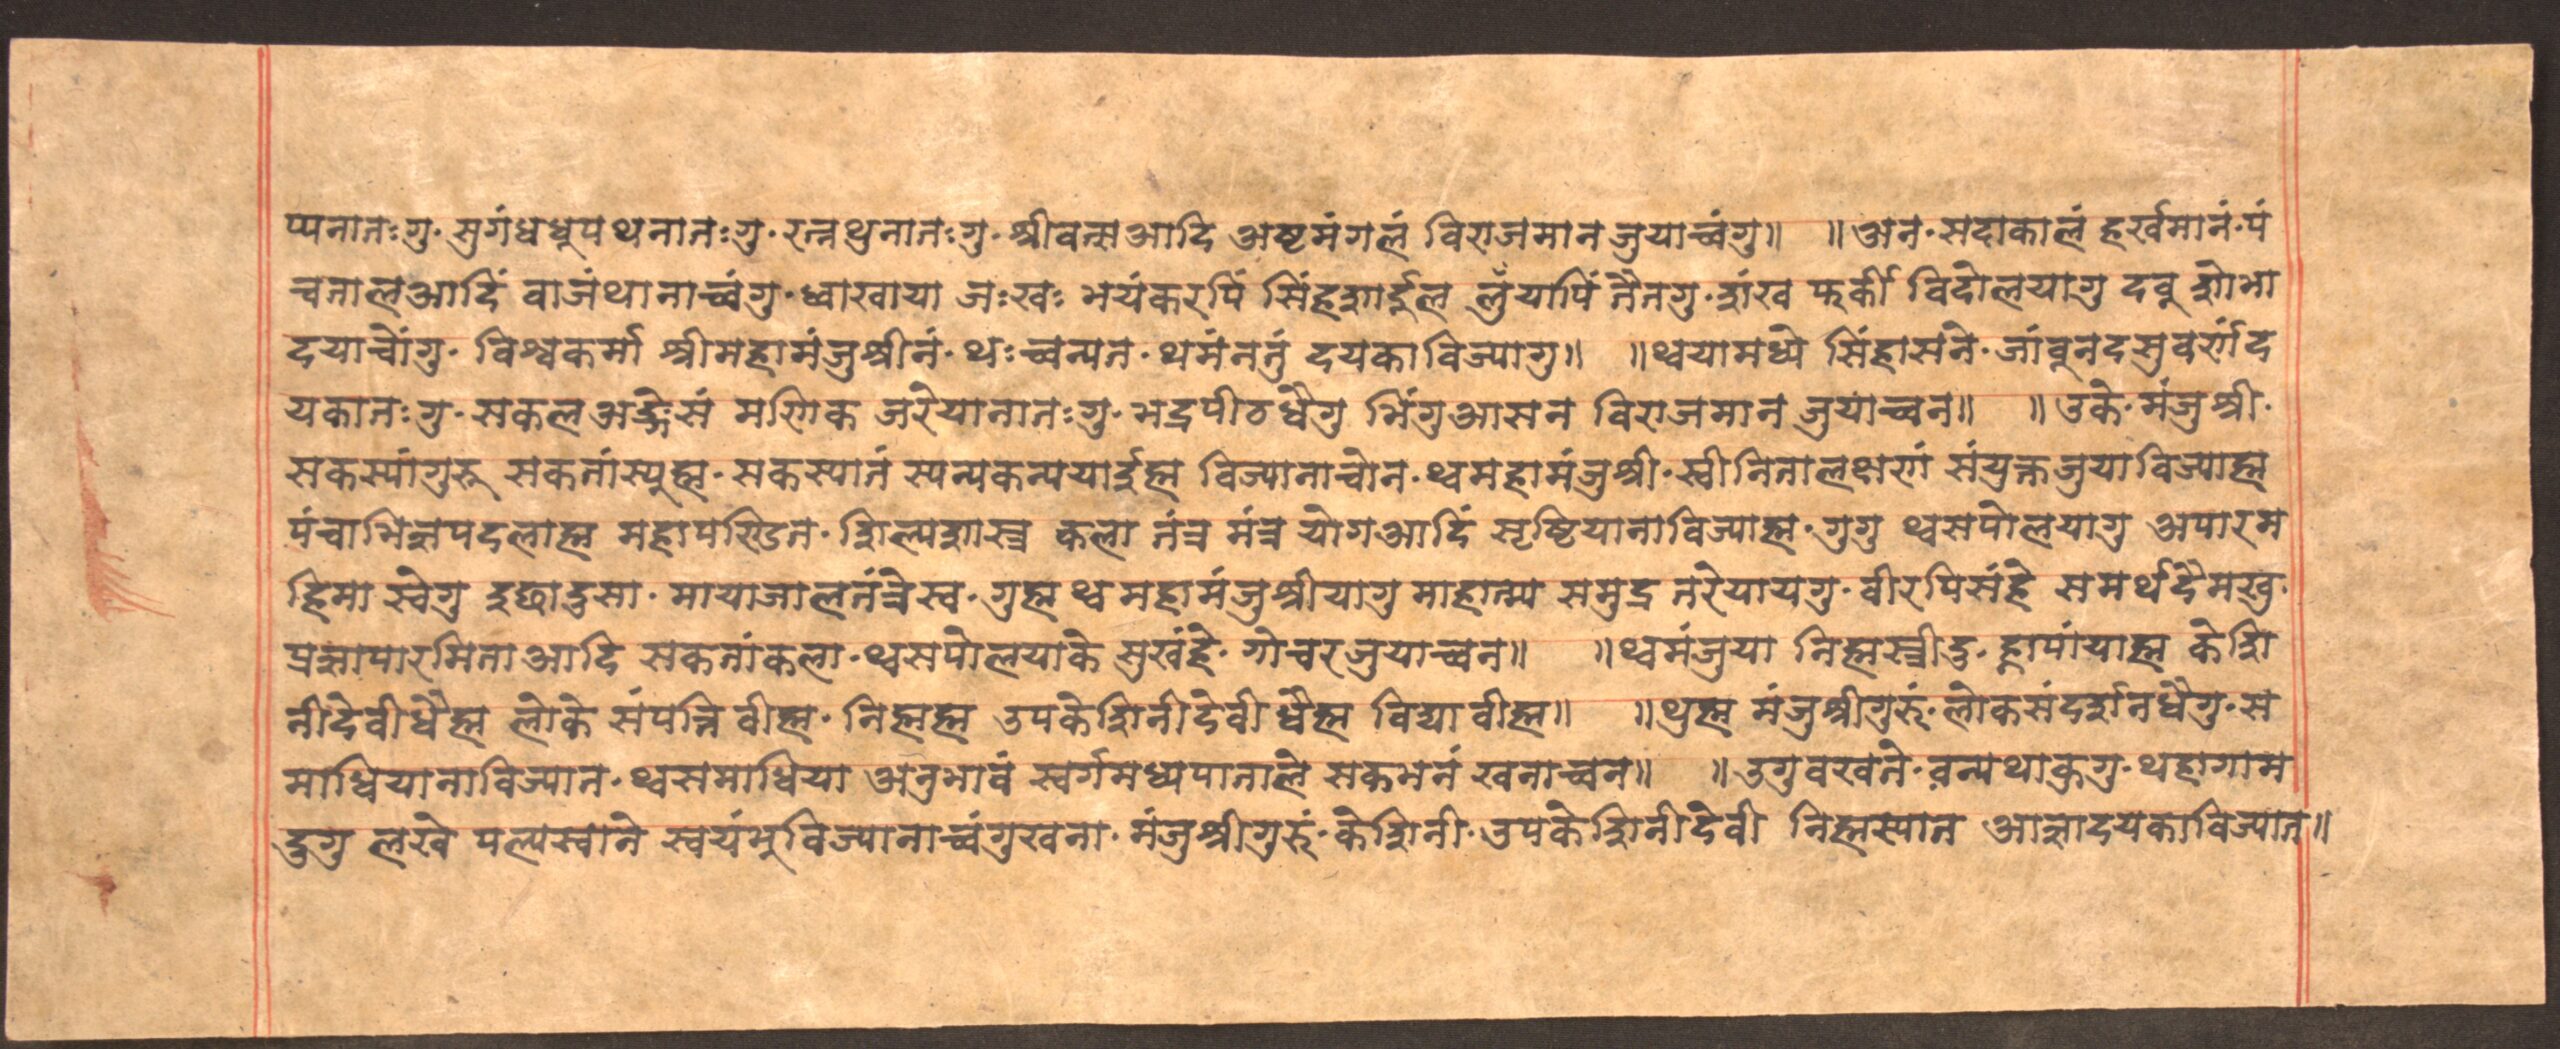 प्पनातःगु· सुगंधधूपथनातःगु· रत्नथुनातःगु· श्रीवत्सआदि अष्टमंगलं विराजमान जुयाच्वंगु॥ ॥अन· सदाकालं हर्खमानं· पं
चतालआदिं वाजंथानाच्वंगु· ध्वाखाया जःखः भयंकरपिं सिंहशार्दूल लुँयापिं तैतगु· शंख फुर्की विदोलयागु दबु शोभा
दयाचोंगु· विश्वकर्मा श्रीमहामंजुश्रीनं· थःच्वन्यत· थमंनतुं दयकाविज्यागु॥ ॥थ्वयामध्ये सिंहासने· जांवूनदसुवर्णंद
यकातःगु· सकलअङ्गेसं मणिक जरेयानातःगु· भद्रपीठधैगु भिंगुआसन विराजमान जुयाच्वन॥ ॥उके· मंजुश्री·
सकस्यांगुरू सकतांस्युह्म· सकस्यातं स्यन्यकन्ययार्इह्म विज्यानाचोन· थ्वमहामंजुश्री· स्वीनितालक्षणं संयुक्तजुयाविज्याह्म
पंचाभिज्ञपदलाह्म महापण्डित· शिल्पशास्त्र कला तंत्र मंत्र योगआदिं सृष्टियानाविज्याह्म· गुगु थ्वसपोलयागु अपारम
हिमा स्वेगु इछादुसा· मायाजालतंत्रेस्व· गुह्म थ्वमहामंजुश्रीयागु माहात्म्य समुद्र तरेयायगु· वीरपिसंहे समर्थदैमखु·
प्रज्ञापारमिताआदि सकतांकला· थ्वसपोलयाके सुखंहे· गोचरजुयाच्वन॥ ॥थ्वमंजुया निह्मस्त्रीदु· ह्नापांयाह्म केशि
नीदेवीधैह्म लोके संपत्ति वीह्म· निह्मह्म उपकेशिनीदेवी धैह्म विद्यावीह्म॥ ॥थुह्म मंजुश्रीगुरुं· लोकसंदर्शनधैगु· स
माधियानाविज्यात· थ्वसमाधिया अनुभावं स्वर्गमध्यपाताले सकभनं खनाच्वन॥ ॥उगुवखते· वन्यथाकुगु· थहागाम
दुगु लखे पल्यस्वाने स्वयंभुविज्यानाच्वंगुखना· मंजुश्रीगुरुं· केशिनी· उपकेशिनीदेवी निह्मस्यात आज्ञादयकाविज्यात॥